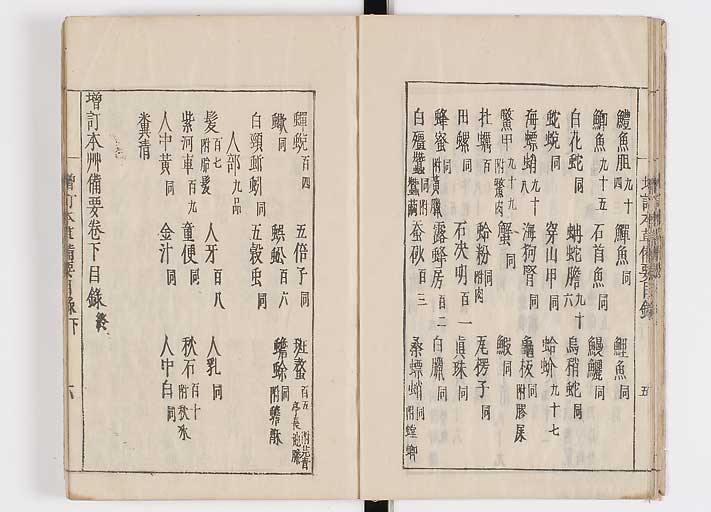 鱧魚胆九十四 鱓魚同 鯉魚同
鯽魚九十五 石首魚同 鰻鱺同
白花蛇同 蚺蛇膽九十六 烏稍蛇同
蛇蛻同 穿山甲同 蛤蚧九十七
海螵蛸九十八 海狗腎同 龜板同附膠尿
鱉甲九十九附鱉肉 蟹同 蝦同
牡蠣百 蛤粉同附肉 瓦楞子同
田螺同 石决明百一 真珠同
蜂蜜同附黃蠟 露蜂房百二 白臘同
白殭蠶同附蠶繭 蚕砂百三 桑螵蛸同附螳螂
增訂本草備要目錄
五
蟬蛻百四 五倍子同 斑蝥百五
蠍同 蜈蚣百六 蟾蜍同附蟾酥
白頸蚯蚓同 五穀虫同
人部九品
髮百七附胎髮 人牙百八 人乳同
紫河車百九 童便同 秋石百十附秋氷
人中黃同 金汁同 人中白同
糞清
增訂本艸備要卷下目錄終
增訂本草備要目錄下 六